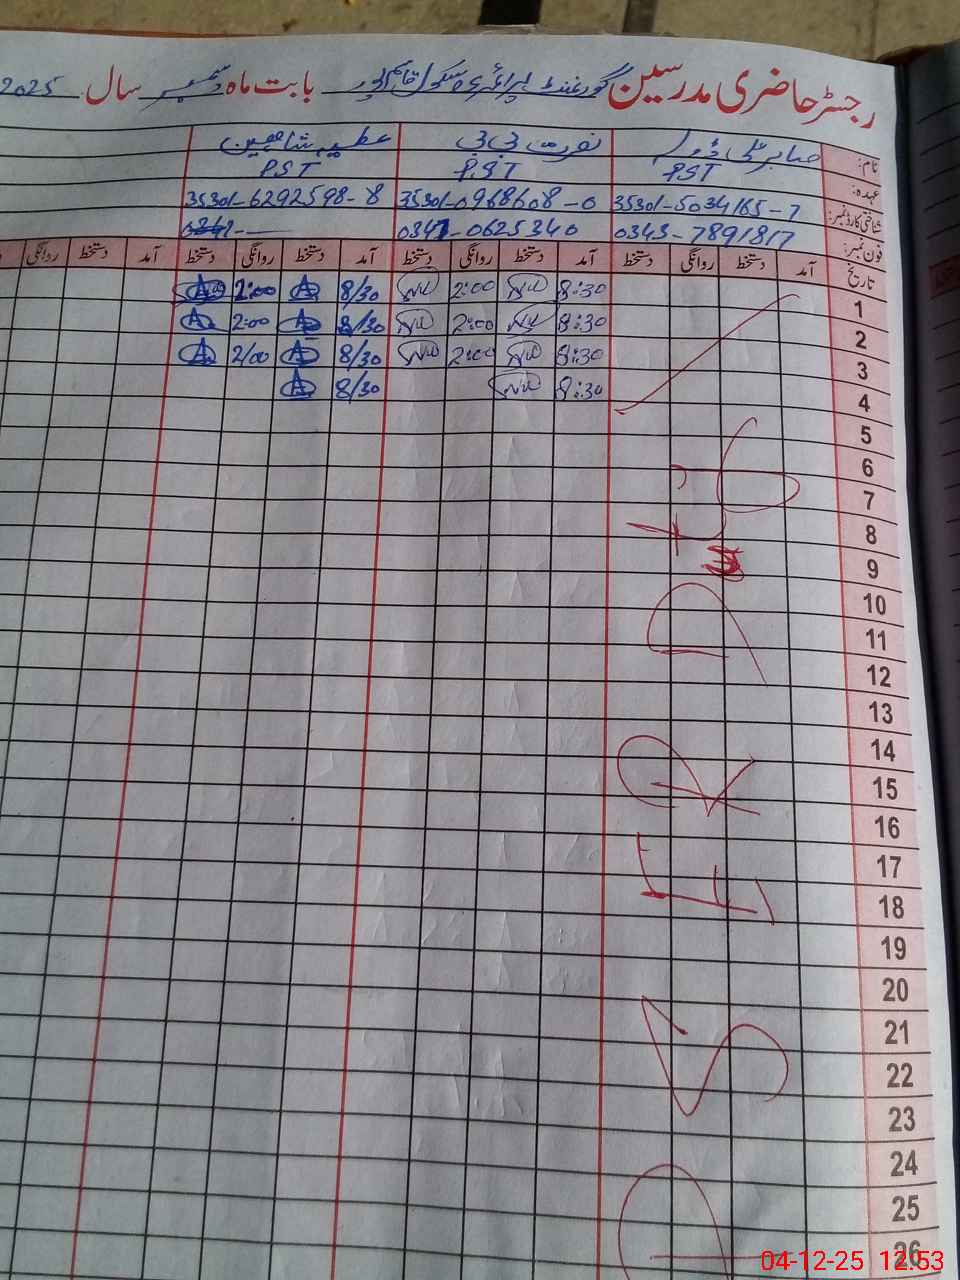 رجسٹر حاضری مدرسین گورنمنٹ پرائمری سکول قاسم پور بابت ماہ دسمبر سال 2025
نام: صابر علی ڈوگر نصرت بی بی عظمیٰ شاہین
عہدہ: PST P.ST P.ST
شناختی کارڈ نمبر: 35301-5034165-7 35301-0968608-0 35301-6292598-8
فون نمبر: 0343-7891817 0347-0625340
تاریخ آمد دستخط روانگی دستخط آمد دستخط روانگی دستخط آمد دستخط روانگی دستخط آمد دستخط روانگی
1 8:30 2:00 8/30 2:00
2 8:30 2:00 8/30 2:00
3 8:30 2:00 8/30 2/00
4 8:30 8/30
5
6
7
8
9
10
11
12
13
14
15
16
17
18
19
20
21
22
23
24
25
26
PSER Duty
04-12-25 12:53